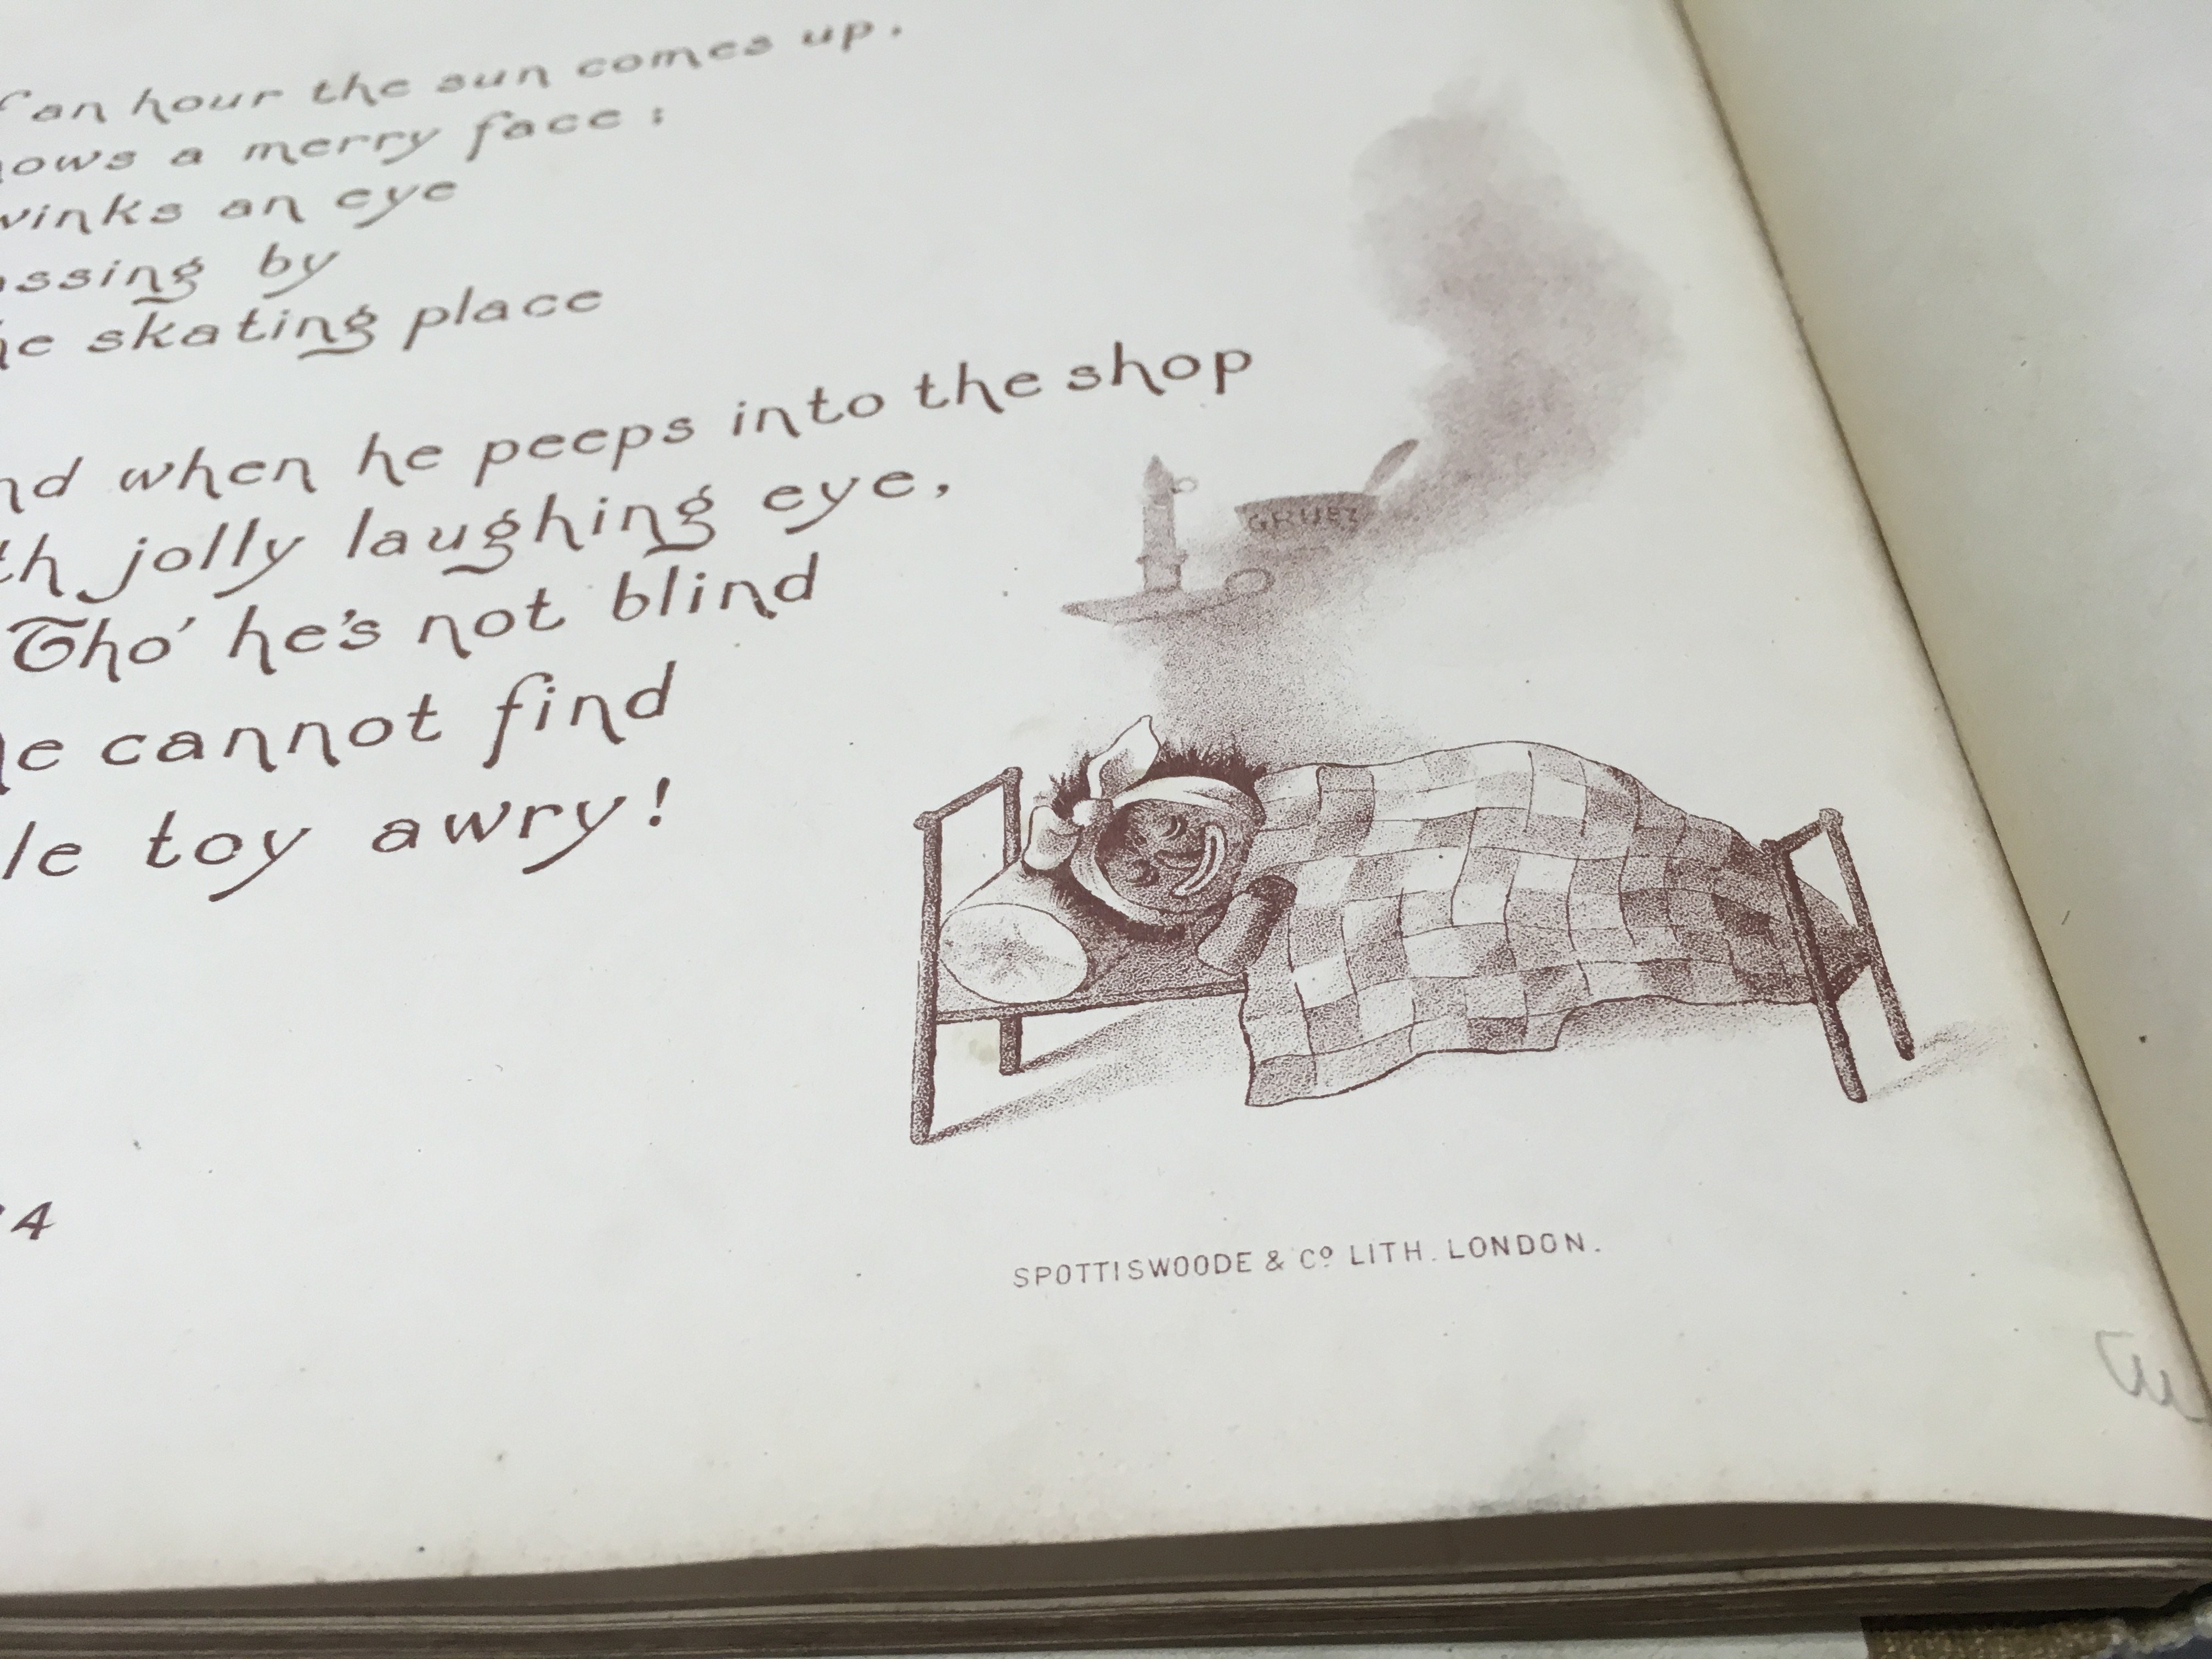 an hour the sun comes up,
hows a merry face;
winks an eye
assing by
he skating place
nd when he peeps into the shop
th jolly laughing eye,
Tho' he's not blind
he cannot find
le toy awry!
GRUEL
4
SPOTTISWOODE & Cº LITH. LONDON.